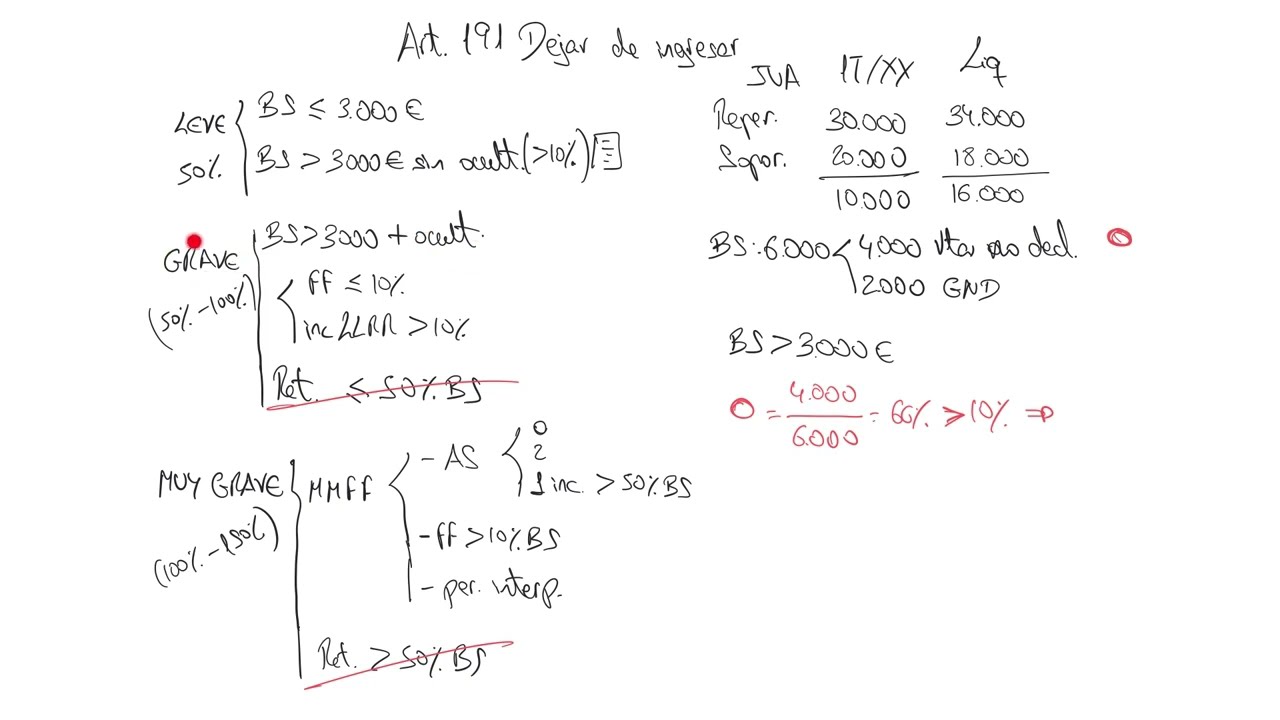 Art. 191 Dejar de ingresar
LEVE
50%
BS ≤ 3.000 €
BS > 3000 € sin ocult. (>10%)
GRAVE
(50% - 100%)
BS > 3000 + ocult.
ff ≤ 10%
inc LLRR > 10%
Ret. ≤ 50% BS
MUY GRAVE
(100% - 150%)
MMFF
- AS
0
2
1 inc. > 50% BS
- ff > 10% BS
- per. interp.
Ret. > 50% BS
IVA 1T/XX Liq
Reper. 30.000 34.000
Sopor. 20.000 18.000
10.000 16.000
BS: 6.000
4.000 Vtas no decl.
2000 GND
BS > 3.000 €
O = 4.000
6.000
= 66% > 10% ⇒